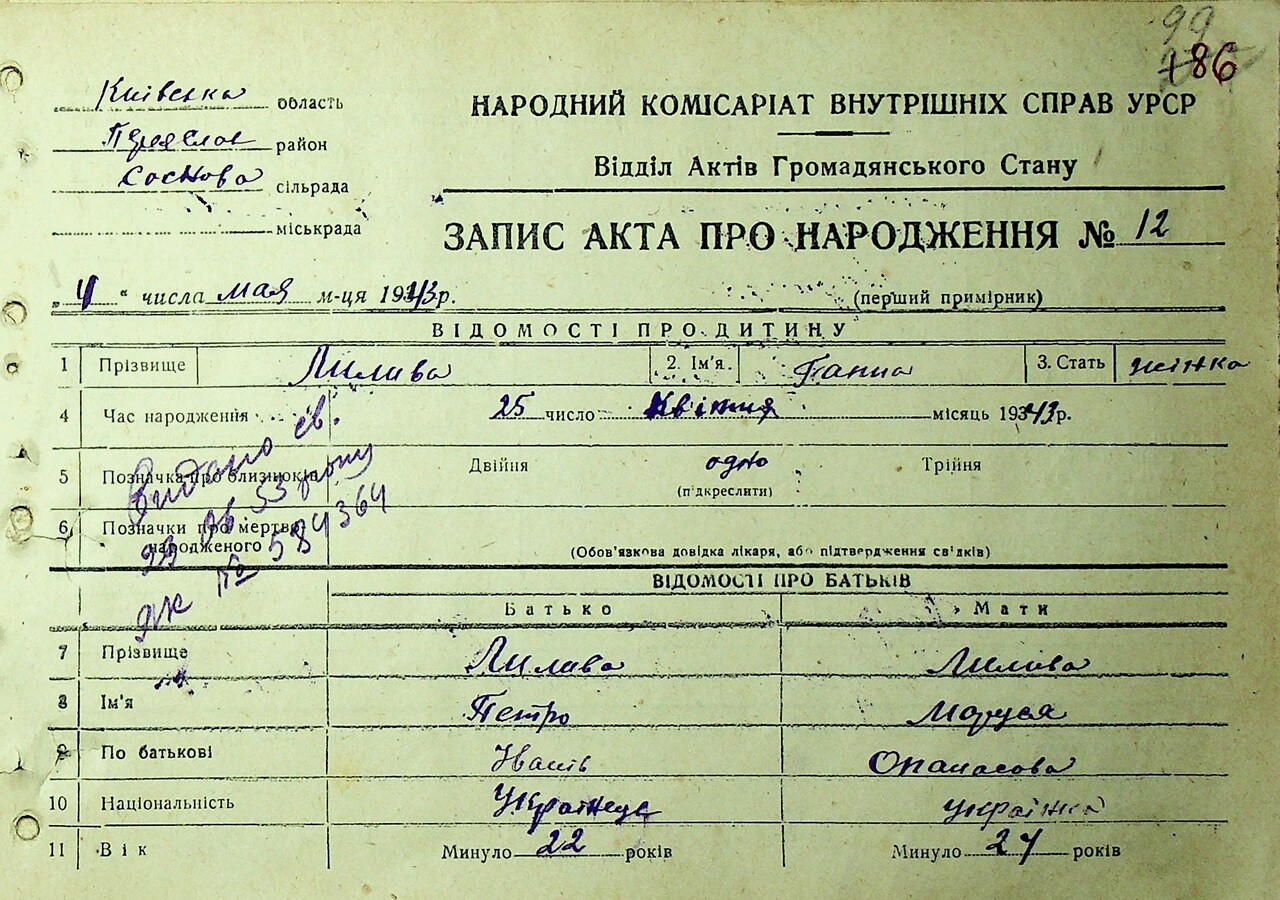 99
186
Київська область
Переяслов район
Соснова сільрада
міськрада
НАРОДНИЙ КОМІСАРІАТ ВНУТРІШНІХ СПРАВ УРСР
Відділ Актів Громадянського Стану
ЗАПИС АКТА ПРО НАРОДЖЕННЯ № 12
„4" числа мая м-ця 1943 р.
(перший примірник)
ВІДОМОСТІ ПРО ДИТИНУ
1 Прізвище Лилива 2. Ім'я Ганна 3. Стать жінка
4 Час народження 25 число Квітня місяць 1943 р.
5 Позначка про близнюків Двійня одно Трійня
(підкреслити)
6 Позначки про мертво-
народженого
(Обов'язкова довідка лікаря, або підтвердження свідків)
Видано св.
23 06 53 року
ЯК № 584364
ВІДОМОСТІ ПРО БАТЬКІВ
Батько Мати
7 Прізвище Лилива Лилива
8 Ім'я Петро Маруся
9 По батькові Іванів Опанасова
10 Національність Українець українка
11 Вік Минуло 22 років Минуло 24 років